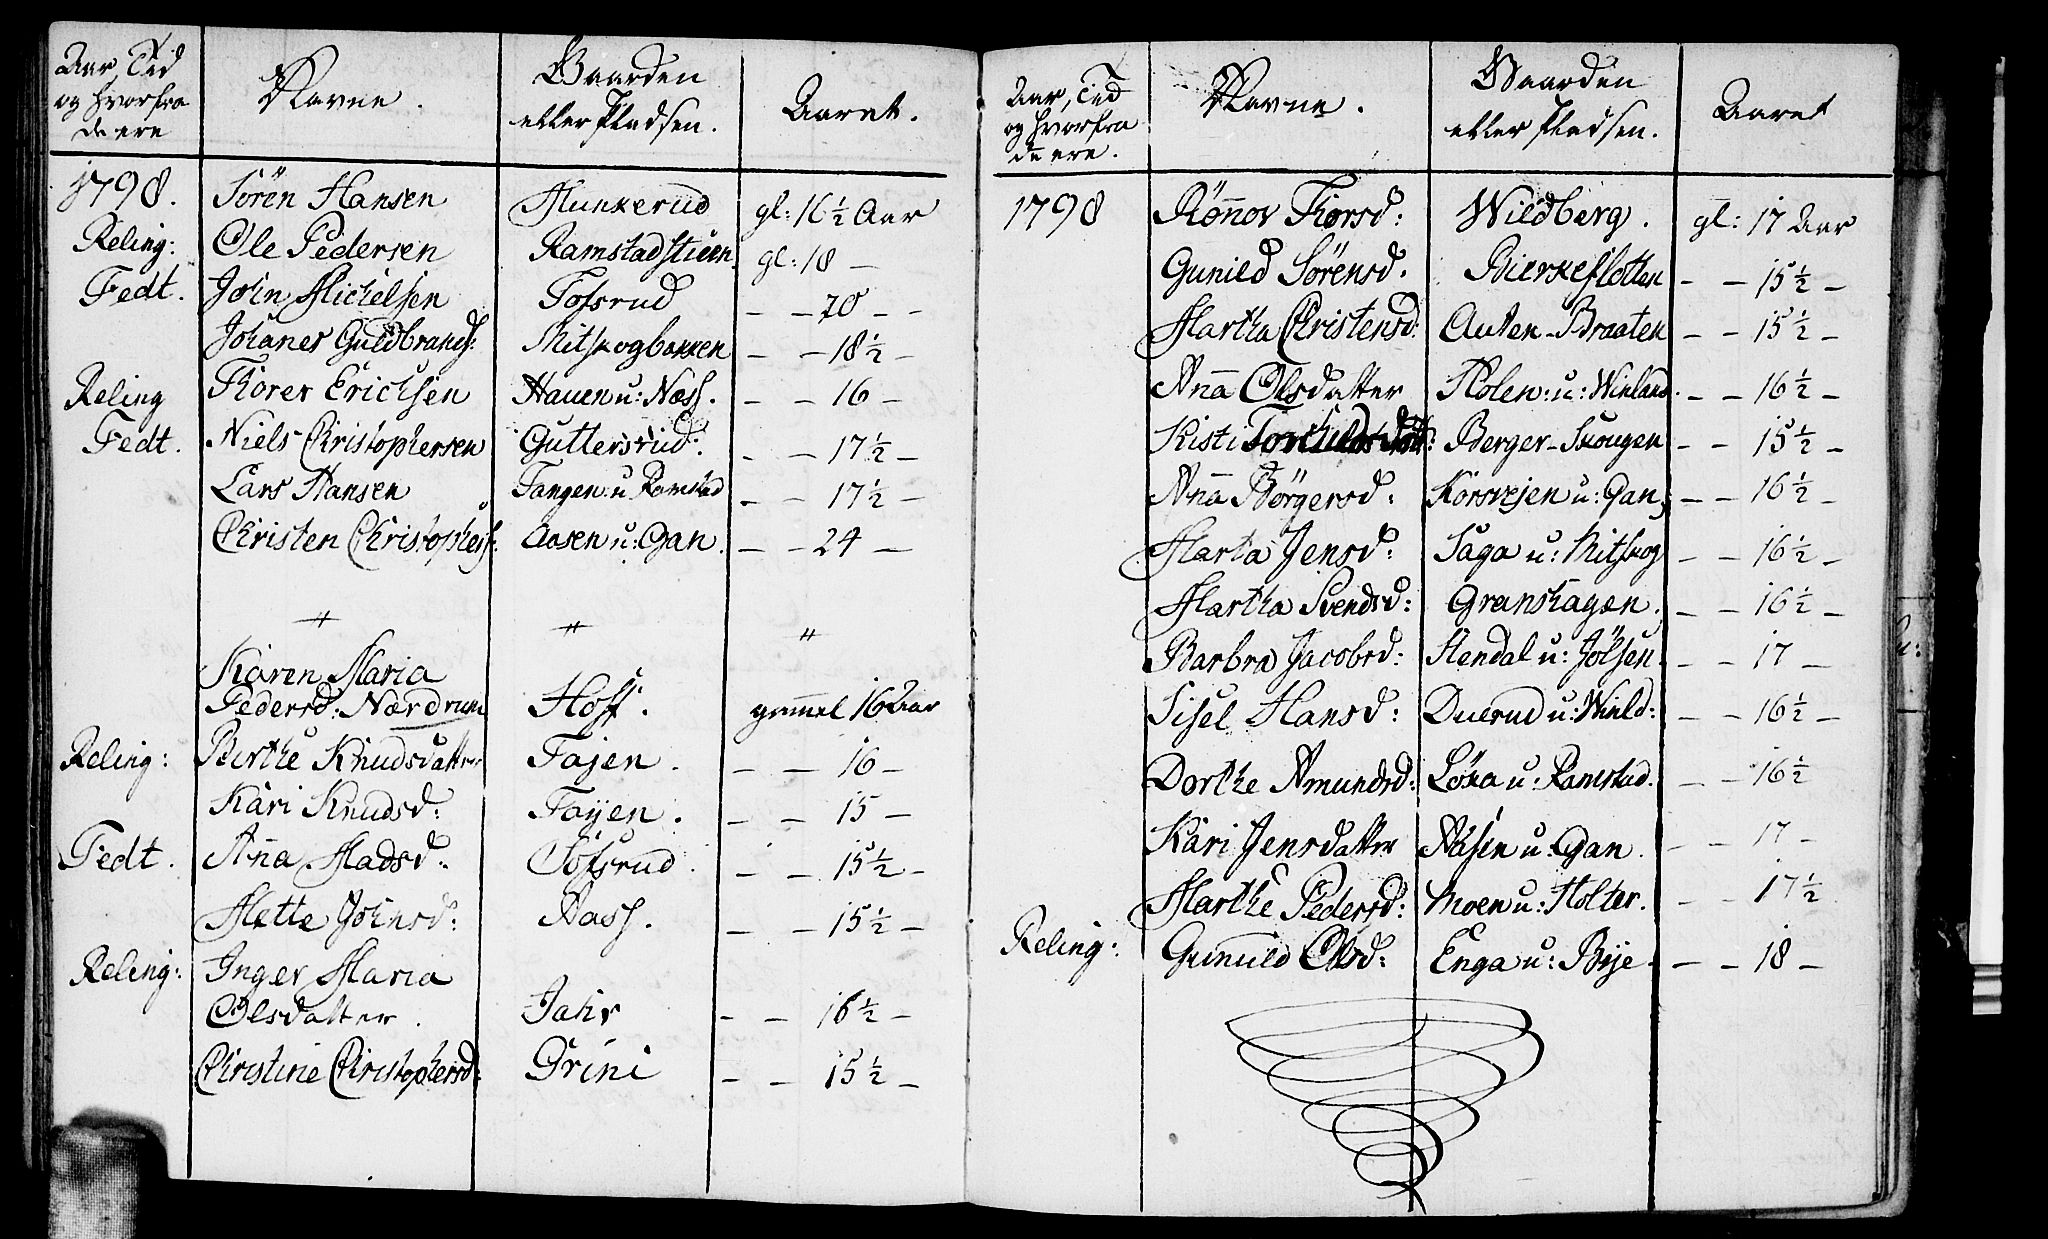 Aar, Tid
og hvorfra
de ere
Navne.
Gaarden
eller Pladsen.
Aaret.
1798. Sören Hansen Munkerud gl: 16 1/2 Aar
Reling: Ole Pedersen Ramstadstuen gl: 18 —
Fedt. John Michelsen Tofsrud — — 20 — —
Johanes Guldbrands: Mitskogbakken — — 18 1/2 —
Reling Thorer Erichsen Hauen u: Næss. — — 16 —
Fedt. Niels Christophersen Guttersrud. — — 17 1/2 —
Lars Hansen Tangen u: Ramstad — — 17 1/2 —
Christen Christophers: Aasen u: Gan. — — 24 —
〃 〃 〃
Karen Maria
Pedersd: Nærdrum Hoff. gammel 16 Aar
Reling: Birthe Knudsdatter Fajen. — — 16 —
Kari Knudsd: Fayen. — — 15 —
Fedt. Anna Madsd: Tofsrud. — — 15 1/2 —
Mette Johnsd: Næss. — — 15 1/2 —
Reling: Inger Maria
Olsdatter. Jahr — — 16 1/2 —
Christine Christophersd: Grini — — 15 1/2 —
Aar, Tid
og hvorfra
de ere.
Navne.
Gaarden
eller Pladsen.
Aaret
1798 Rönnov Thorsd: Wildberg. gl: 17 Aar
Gunild Sörensd. Bierkeflotten — — 15 1/2 —
Martha Christensd: Auten-Braaten — — 15 1/2 —
Anna Olsdatter Holen: u: Winland. — — 16 1/2 —
Kisti Berger-Skougen — — 15 1/2 —
Anna Börgersd: Korsvejen u: Gan; — — 16 1/2 —
Marta Jensd: Saga u: Mitskog — — 16 1/2 —
Martha Svendsd: Granshagen. — — 16 1/2 —
Barbra Jacobsd: Stendal u: Jölsen. — — 17 —
Sisel Hansd: Duerud u: Winld: — — 16 1/2 —
Dorthe Amundsd: Löka u: Ramstad. — — 16 1/2
Kari Jensdatter Aasen u: Gan. — — 17 —
Marthe Pedersd: Moen u: Holter. — — 17 1/2
Reling: Gunnild Olsd: Enga u: Bye. — — 18 —